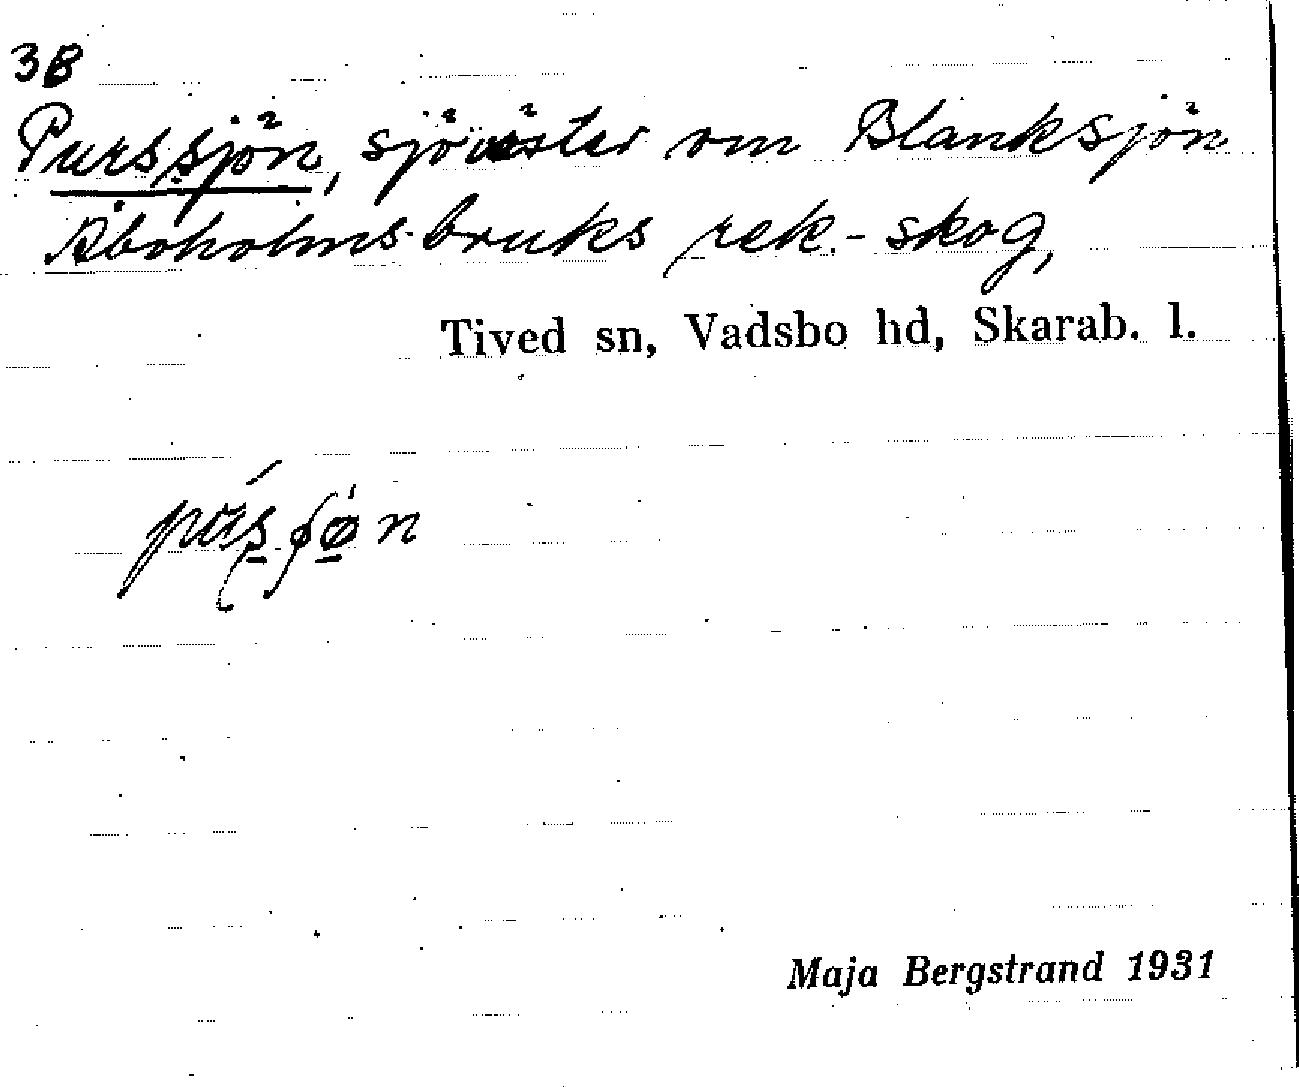 3B
Purssjön, sjö väster om Blanksjön
Åboholms bruks rek.-skog,
Tived sn, Vadsbo hd, Skarab. l.
Maja Bergstrand 1931